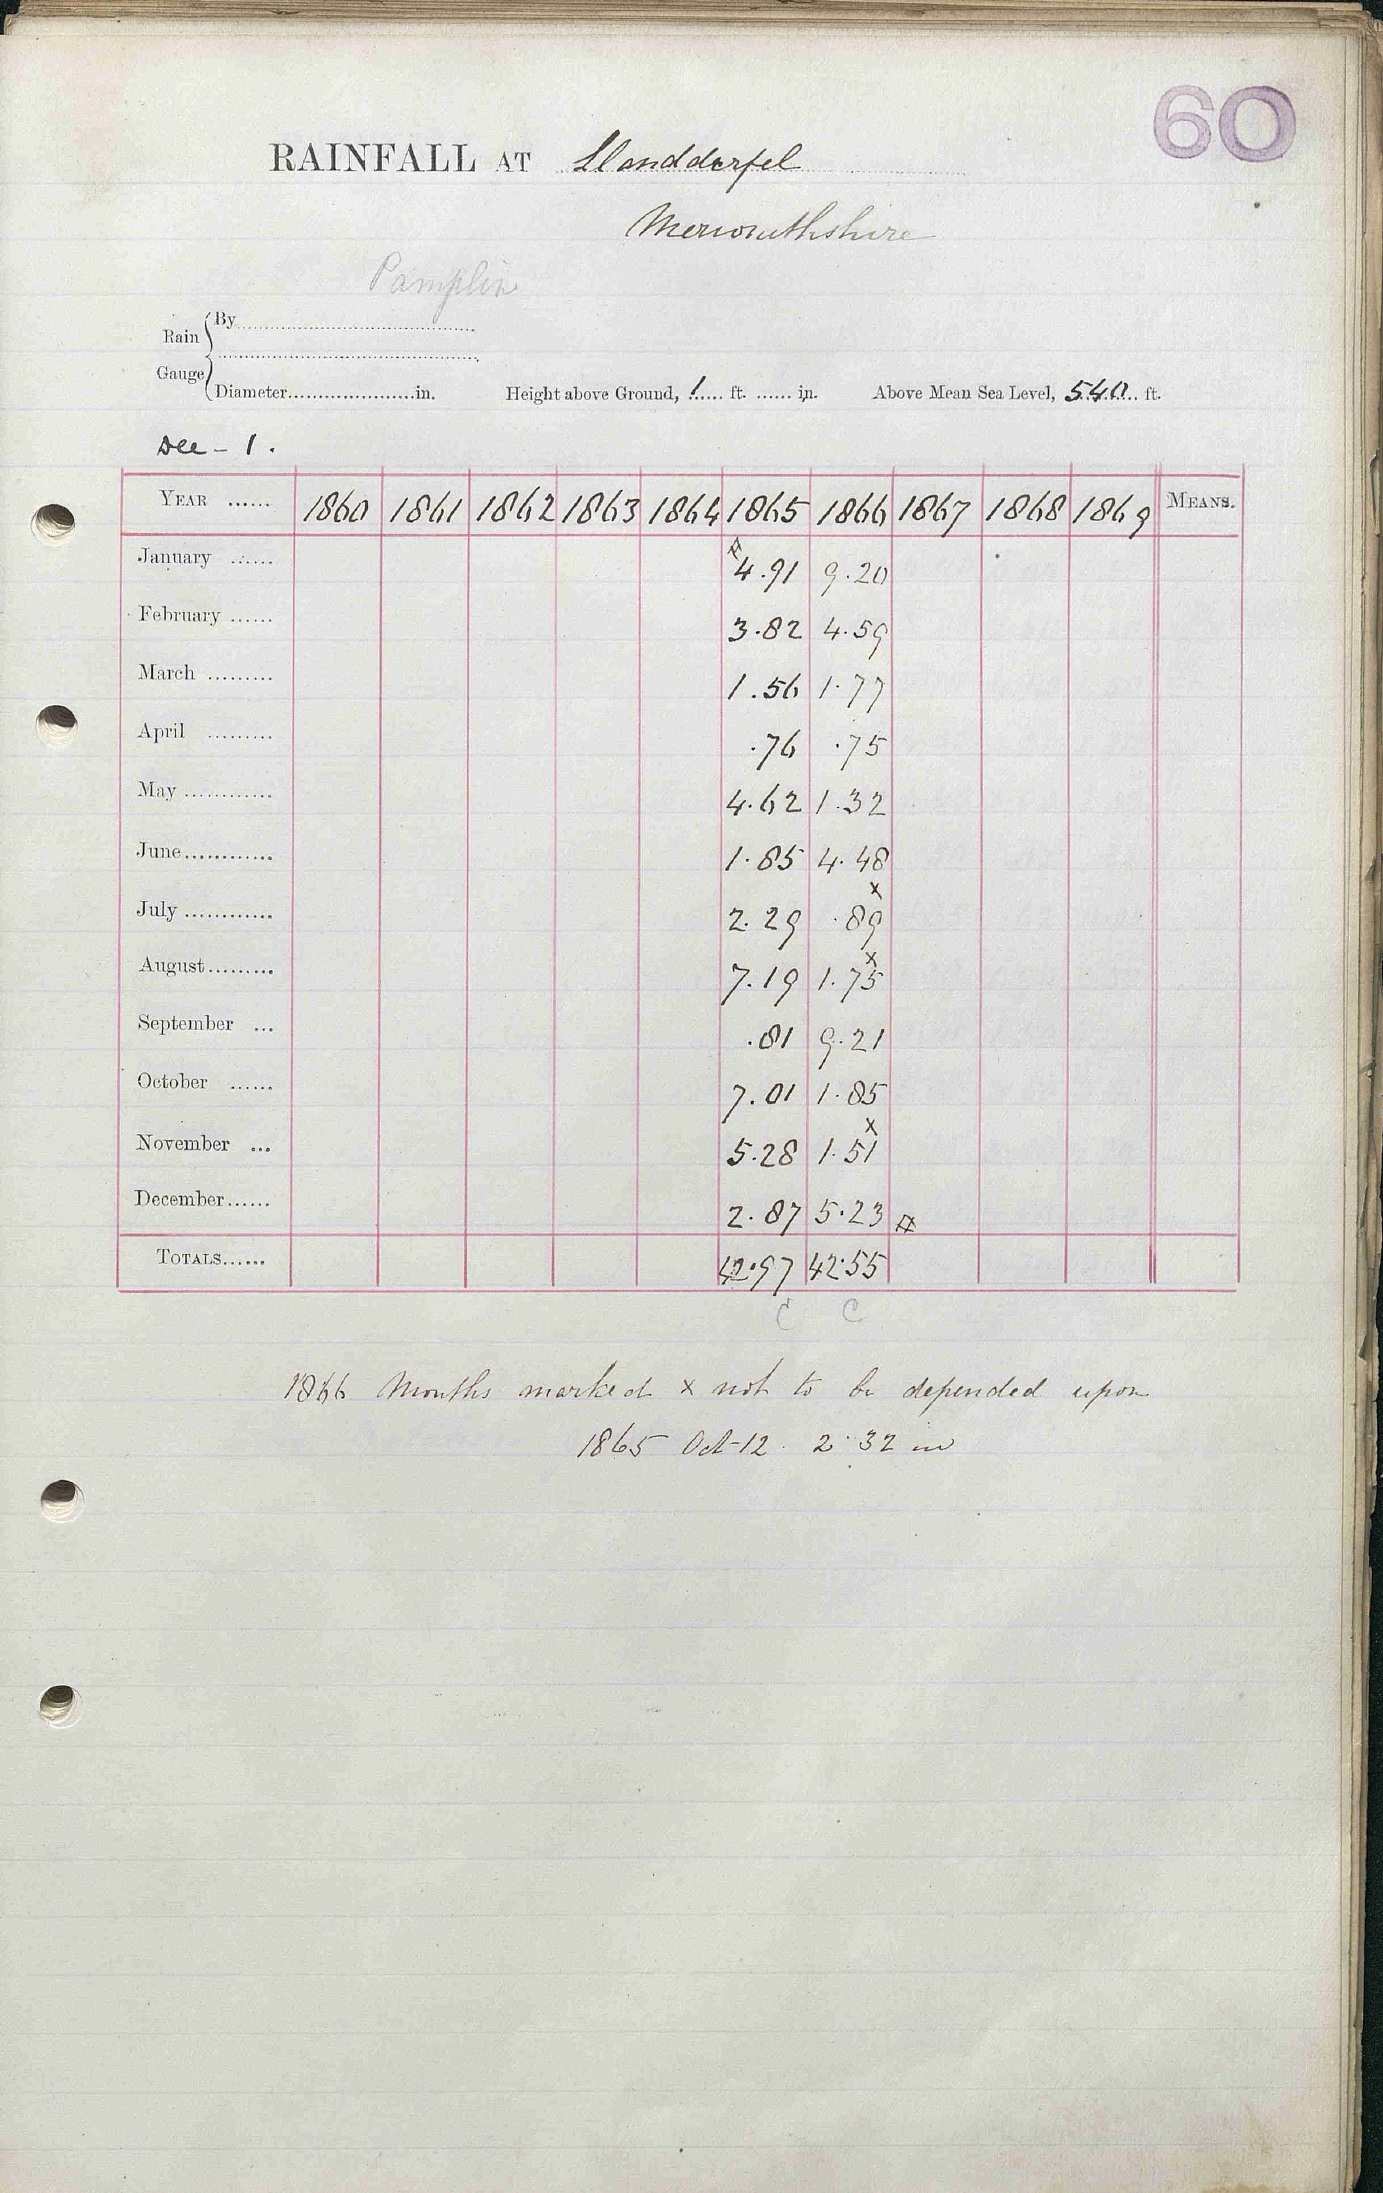 60
RAINFALL AT Llandderfel
Merionethshire
Pamplin
Rain Gauge
By
Diameter in. Height above Ground, 1 ft. in. Above Mean Sea Level, 540 ft.
Dee - 1.
YEAR 1860 1861 1862 1863 1864 1865 1866 1867 1868 1869 MEANS.
January 4.91 9.20
February 3.82 4.59
March 1.56 1.77
April .76 .75
May 4.62 1.32
June 1.85 4.48
July 2.29 .89 x
August 7.19 1.75 x
September .81 9.21
October 7.01 1.85
November 5.28 1.51 x
December 2.87 5.23
TOTALS 42.97 42.55
C C
1866 Months marked x not to be depended upon
1865 Oct 12 2.32 in